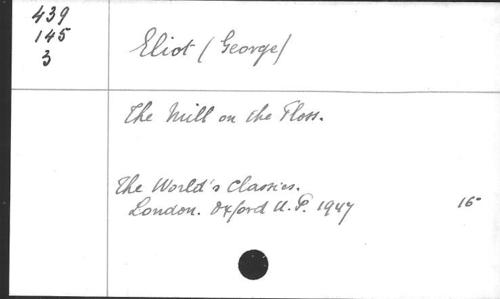 439
145
3
Eliot (George)
The Mill on the Floss.
The World's Classics.
London. Oxford U.P. 1947
15